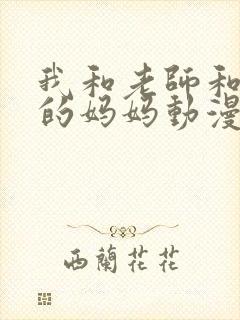 我和老師和
的妈妈動漫
西蘭花花